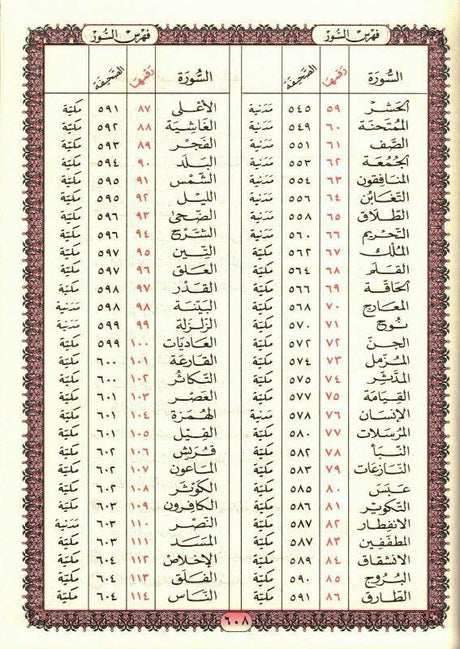 فهرس السُّوَر
السُّورَة رقمها الصحيفة
الحَشْر ٥٩ ٥٤٥ مَدنية
المُمتَحنَة ٦٠ ٥٤٩ مَدنية
الصَّف ٦١ ٥٥١ مَدنية
الجُمُعَة ٦٢ ٥٥٣ مَدنية
المنَافِقون ٦٣ ٥٥٤ مَدنية
التغَابُن ٦٤ ٥٥٦ مَدنية
الطّلَاق ٦٥ ٥٥٨ مَدنية
التحْريم ٦٦ ٥٦٠ مَدنية
المُلْك ٦٧ ٥٦٢ مكيّة
القَلَم ٦٨ ٥٦٤ مكيّة
الحَاقّة ٦٩ ٥٦٦ مكيّة
المعَارج ٧٠ ٥٦٨ مكيّة
نُوح ٧١ ٥٧٠ مكيّة
الجنّ ٧٢ ٥٧٢ مكيّة
المُزّمل ٧٣ ٥٧٤ مكيّة
المدَّثِر ٧٤ ٥٧٥ مكيّة
القِيَامَة ٧٥ ٥٧٧ مكيّة
الإنسَان ٧٦ ٥٧٨ مَدنية
المُرسَلات ٧٧ ٥٨٠ مكيّة
النّبَأ ٧٨ ٥٨٢ مكيّة
النّازعَات ٧٩ ٥٨٣ مكيّة
عَبَسَ ٨٠ ٥٨٥ مكيّة
التكوير ٨١ ٥٨٦ مكيّة
الانفِطار ٨٢ ٥٨٧ مكيّة
المطفّفِين ٨٣ ٥٨٧ مكيّة
الانشقاق ٨٤ ٥٨٩ مكيّة
البُروج ٨٥ ٥٩٠ مكيّة
الطّارق ٨٦ ٥٩١ مكيّة
فهرس السُّوَر
السُّورَة رقمها الصحيفة
الأعْلى ٨٧ ٥٩١ مكيّة
الغَاشِيَة ٨٨ ٥٩٢ مكيّة
الفَجْر ٨٩ ٥٩٣ مكيّة
البَلَد ٩٠ ٥٩٤ مكيّة
الشَّمْس ٩١ ٥٩٥ مكيّة
الليْل ٩٢ ٥٩٥ مكيّة
الضّحى ٩٣ ٥٩٦ مكيّة
الشَّرْح ٩٤ ٥٩٦ مكيّة
التِّين ٩٥ ٥٩٧ مكيّة
العَلَق ٩٦ ٥٩٧ مكيّة
القَدْر ٩٧ ٥٩٨ مكيّة
البَيّنَة ٩٨ ٥٩٨ مَدنية
الزّلزَلة ٩٩ ٥٩٩ مَدنية
العَاديَات ١٠٠ ٥٩٩ مكيّة
القَارعَة ١٠١ ٦٠٠ مكيّة
التّكاثر ١٠٢ ٦٠٠ مكيّة
العَصْر ١٠٣ ٦٠١ مكيّة
الهُمَزَة ١٠٤ ٦٠١ مكيّة
الفِيل ١٠٥ ٦٠١ مكيّة
قُرَيْش ١٠٦ ٦٠٢ مكيّة
المَاعون ١٠٧ ٦٠٢ مكيّة
الكَوثَر ١٠٨ ٦٠٢ مكيّة
الكافِرون ١٠٩ ٦٠٣ مكيّة
النّصْر ١١٠ ٦٠٣ مَدنية
المَسَد ١١١ ٦٠٣ مكيّة
الإخلاص ١١٢ ٦٠٤ مكيّة
الفَلَق ١١٣ ٦٠٤ مكيّة
النَّاس ١١٤ ٦٠٤ مكيّة
٦٠٨